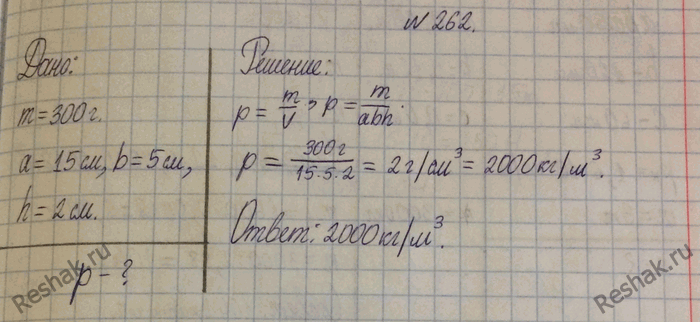 № 262.
Дано:
m = 300 г.
a = 15 см, b = 5 см,
h = 2 см.
p - ?
Решение:
p = m/v, p = m/abh.
p = 300г/15·5·2 = 2 г/см³ = 2000 кг/м³.
Ответ: 2000 кг/м³.
Reshak.ru
Reshak.ru